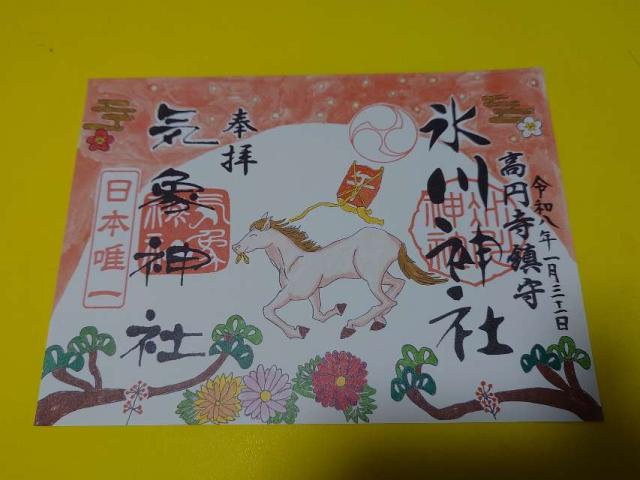 氷川神社
高円寺鎮守
令和八年一月三十一日
奉拝
気象神社
日本唯一